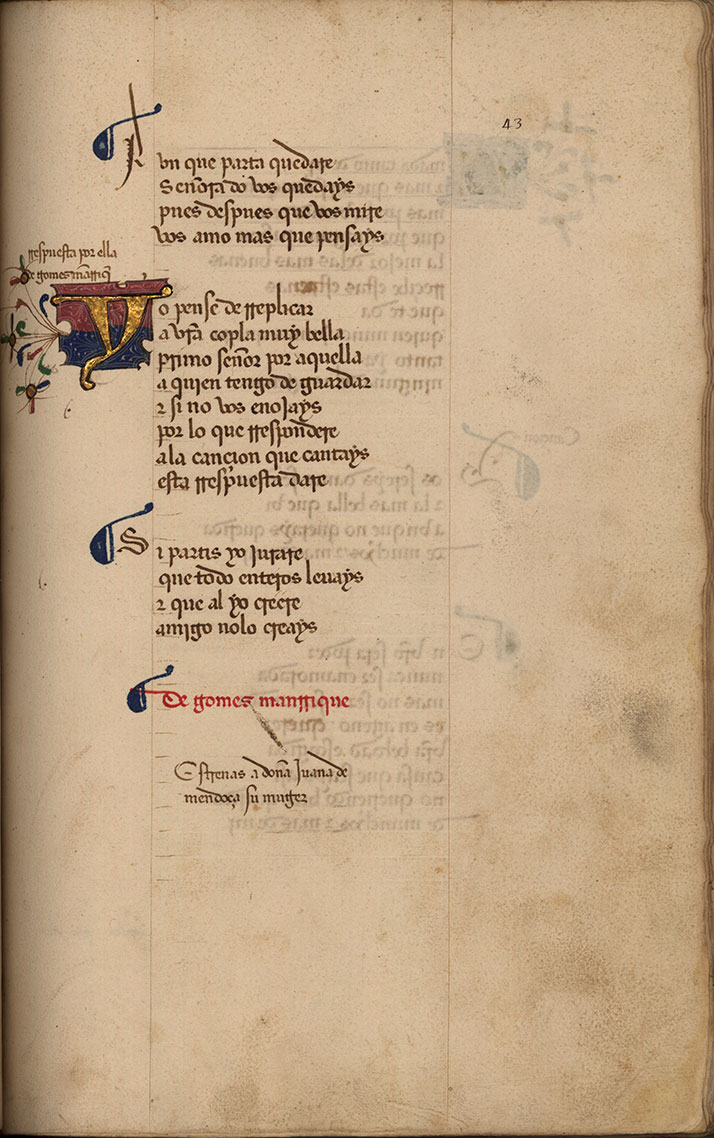 43
Avn que parta quedare
Señora do vos quedays
pues despues que vos mire
vos amo mas que pensays
rrespuesta por ella
de gomes mãrriq̃
Yo pense de rreplicar
a vr̃a copla muy bella
primo señor por aquella
a quien tengo de guardar
z si no vos enojays
por lo que rrespondere
ala cançion que cantays
esta rrespuesta dare
Si partis yo jurare
que todo enteros leuays
z que al yo creere
amigo nolo creays
De gomes manrrique
Estrenas a doña Juana de
mendoça su muger